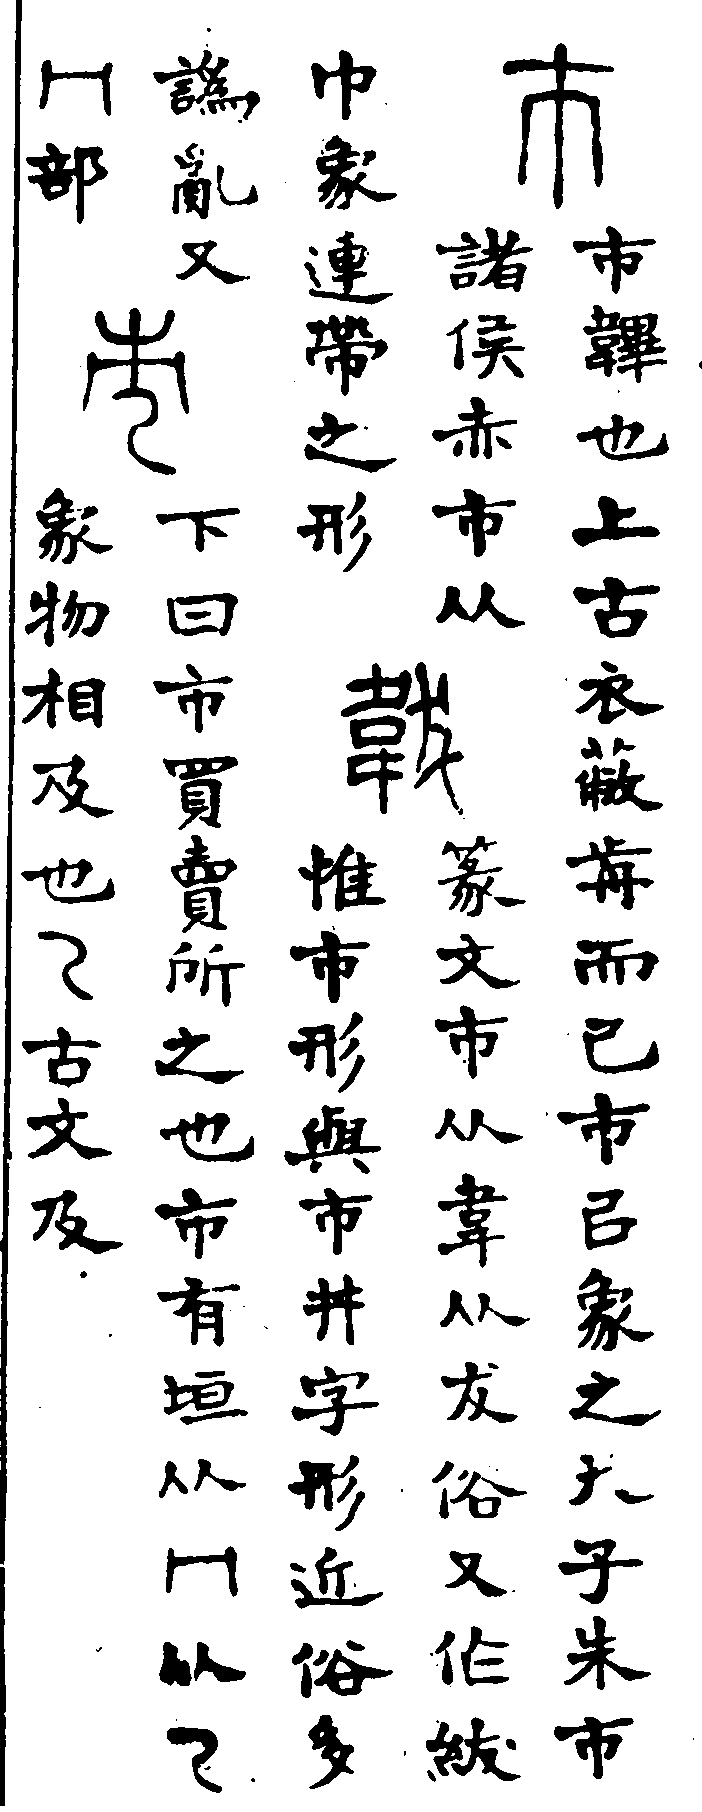 巿
巿韠也上古衣蔽歬而已巿㠯象之天子朱巿
諸侯赤巿从
巾象連帶之形
韍
篆文巿从韋从犮俗又作紱
惟巿形與市井字形近俗多
譌亂又
冂部
市
下曰市買賣所之也市有垣从冂从乁
象物相及也乁古文及